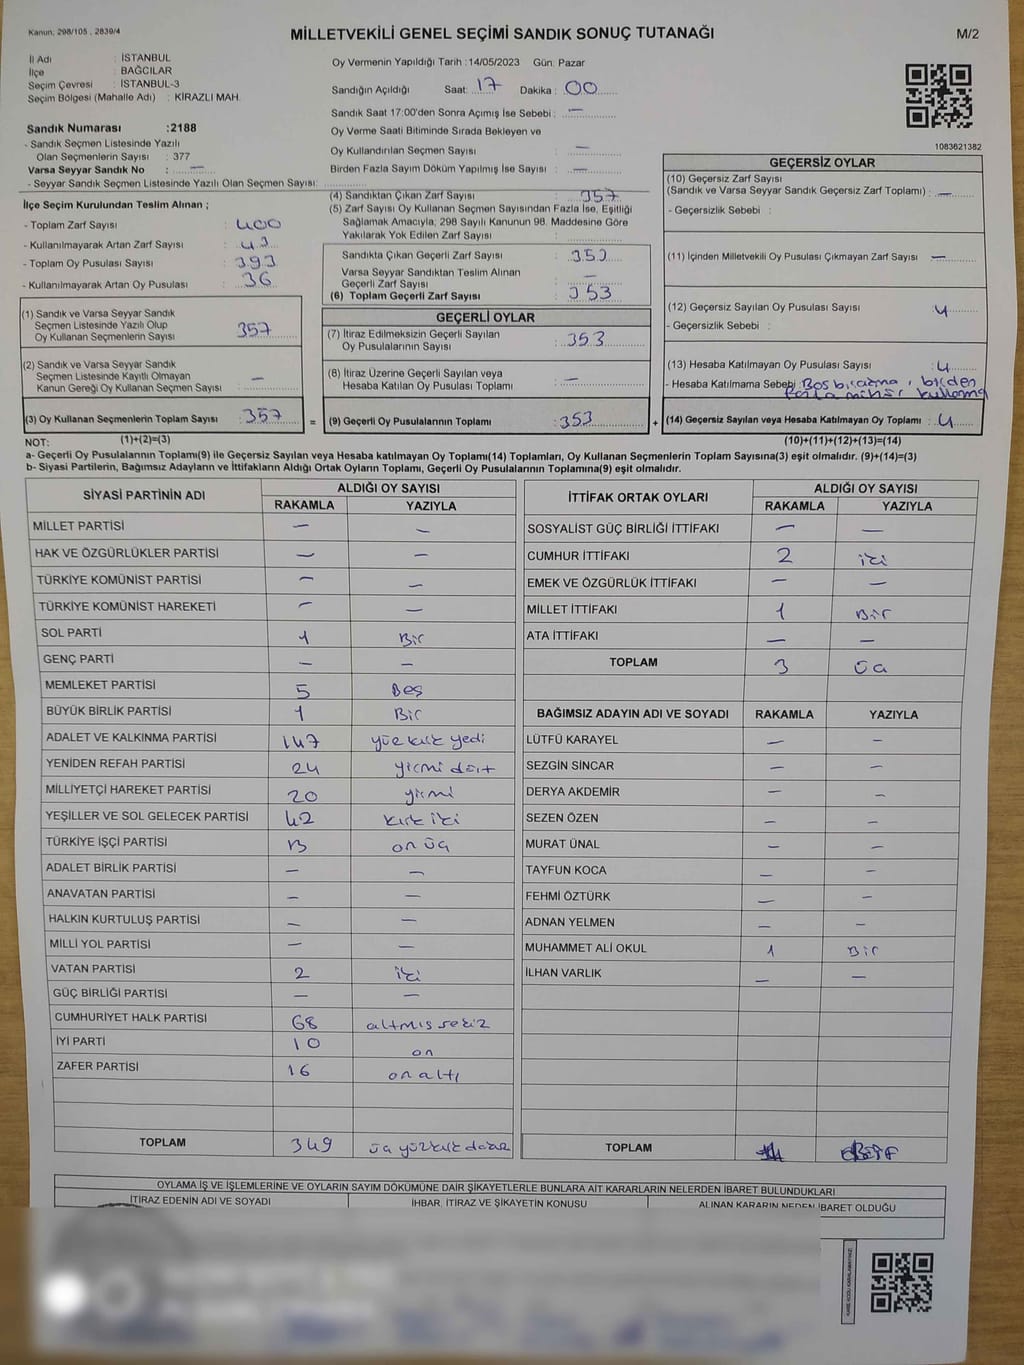 Kanun; 298/105 , 2839/4
MİLLETVEKİLİ GENEL SEÇİMİ SANDIK SONUÇ TUTANAĞI
M/2
İl Adı : İSTANBUL
İlçe : BAĞCILAR
Seçim Çevresi : İSTANBUL-3
Seçim Bölgesi (Mahalle Adı) : KİRAZLI MAH.
Sandık Numarası :2188
- Sandık Seçmen Listesinde Yazılı
Olan Seçmenlerin Sayısı : 377
Varsa Seyyar Sandık No : —
- Seyyar Sandık Seçmen Listesinde Yazılı Olan Seçmen Sayısı:
Oy Vermenin Yapıldığı Tarih :14/05/2023 Gün: Pazar
Sandığın Açıldığı Saat: 17 Dakika : 00
Sandık Saat 17:00'den Sonra Açımış İse Sebebi : —
Oy Verme Saati Bitiminde Sırada Bekleyen ve
Oy Kullandırılan Seçmen Sayısı : —
Birden Fazla Sayım Döküm Yapılmış İse Sayısı : —
1083621382
İlçe Seçim Kurulundan Teslim Alınan ;
- Toplam Zarf Sayısı : 400
- Kullanılmayarak Artan Zarf Sayısı : 43
- Toplam Oy Pusulası Sayısı : 393
- Kullanılmayarak Artan Oy Pusulası : 36
(1) Sandık ve Varsa Seyyar Sandık
Seçmen Listesinde Yazılı Olup
Oy Kullanan Seçmenlerin Sayısı : 357
(2) Sandık ve Varsa Seyyar Sandık
Seçmen Listesinde Kayıtlı Olmayan
Kanun Gereği Oy Kullanan Seçmen Sayısı : —
(3) Oy Kullanan Seçmenlerin Toplam Sayısı : 357
(4) Sandıktan Çıkan Zarf Sayısı : 357
(5) Zarf Sayısı Oy Kullanan Seçmen Sayısından Fazla İse, Eşitliği
Sağlamak Amacıyla; 298 Sayılı Kanunun 98. Maddesine Göre
Yakılarak Yok Edilen Zarf Sayısı :
Sandıkta Çıkan Geçerli Zarf Sayısı : 353
Varsa Seyyar Sandıktan Teslim Alınan
Geçerli Zarf Sayısı : —
(6) Toplam Geçerli Zarf Sayısı : 353
GEÇERLİ OYLAR
(7) İtiraz Edilmeksizin Geçerli Sayılan
Oy Pusulalarının Sayısı : 353
(8) İtiraz Üzerine Geçerli Sayılan veya
Hesaba Katılan Oy Pusulası Toplamı : —
= (9) Geçerli Oy Pusulalarının Toplamı : 353
GEÇERSİZ OYLAR
(10) Geçersiz Zarf Sayısı
(Sandık ve Varsa Seyyar Sandık Geçersiz Zarf Toplamı) : —
- Geçersizlik Sebebi :
(11) İçinden Milletvekili Oy Pusulası Çıkmayan Zarf Sayısı : —
(12) Geçersiz Sayılan Oy Pusulası Sayısı : 4
- Geçersizlik Sebebi :
(13) Hesaba Katılmayan Oy Pusulası Sayısı : 4
- Hesaba Katılmama Sebebi : Boş bırakma, birden
fazla mühür kullanma
+ (14) Geçersiz Sayılan veya Hesaba Katılmayan Oy Toplamı : 4
NOT: (1)+(2)=(3)
(10)+(11)+(12)+(13)=(14)
a- Geçerli Oy Pusulalarının Toplamı(9) ile Geçersiz Sayılan veya Hesaba katılmayan Oy Toplamı(14) Toplamları, Oy Kullanan Seçmenlerin Toplam Sayısına(3) eşit olmalıdır. (9)+(14)=(3)
b- Siyasi Partilerin, Bağımsız Adayların ve İttifakların Aldığı Ortak Oyların Toplamı, Geçerli Oy Pusulalarının Toplamına(9) eşit olmalıdır.
SİYASİ PARTİNİN ADI ALDIĞI OY SAYISI
RAKAMLA YAZIYLA
MİLLET PARTİSİ — —
HAK VE ÖZGÜRLÜKLER PARTİSİ — —
TÜRKİYE KOMÜNİST PARTİSİ — —
TÜRKİYE KOMÜNİST HAREKETİ — —
SOL PARTİ 1 Bir
GENÇ PARTİ — —
MEMLEKET PARTİSİ 5 Beş
BÜYÜK BİRLİK PARTİSİ 1 Bir
ADALET VE KALKINMA PARTİSİ 147 yüz kırk yedi
YENİDEN REFAH PARTİSİ 24 yirmi dört
MİLLİYETÇİ HAREKET PARTİSİ 20 yirmi
YEŞİLLER VE SOL GELECEK PARTİSİ 42 kırk iki
TÜRKİYE İŞÇİ PARTİSİ 13 on üç
ADALET BİRLİK PARTİSİ — —
ANAVATAN PARTİSİ — —
HALKIN KURTULUŞ PARTİSİ — —
MİLLİ YOL PARTİSİ — —
VATAN PARTİSİ 2 iki
GÜÇ BİRLİĞİ PARTİSİ — —
CUMHURİYET HALK PARTİSİ 68 altmış sekiz
İYİ PARTİ 10 on
ZAFER PARTİSİ 16 on altı
TOPLAM 349 üç yüz kırk dokuz
İTTİFAK ORTAK OYLARI ALDIĞI OY SAYISI
RAKAMLA YAZIYLA
SOSYALİST GÜÇ BİRLİĞİ İTTİFAKI — —
CUMHUR İTTİFAKI 2 iki
EMEK VE ÖZGÜRLÜK İTTİFAKI — —
MİLLET İTTİFAKI 1 Bir
ATA İTTİFAKI — —
TOPLAM 3 üç
BAĞIMSIZ ADAYIN ADI VE SOYADI RAKAMLA YAZIYLA
LÜTFÜ KARAYEL — —
SEZGİN SİNCAR — —
DERYA AKDEMİR — —
SEZEN ÖZEN — —
MURAT ÜNAL — —
TAYFUN KOCA — —
FEHMİ ÖZTÜRK — —
ADNAN YELMEN — —
MUHAMMET ALİ OKUL 1 Bir
İLHAN VARLIK — —
TOPLAM
OYLAMA İŞ VE İŞLEMLERİNE VE OYLARIN SAYIM DÖKÜMÜNE DAİR ŞİKAYETLERLE BUNLARA AİT KARARLARIN NELERDEN İBARET BULUNDUKLARI
İTİRAZ EDENİN ADI VE SOYADI İHBAR, İTİRAZ VE ŞİKAYETİN KONUSU ALINAN KARARIN NEDEN İBARET OLDUĞU